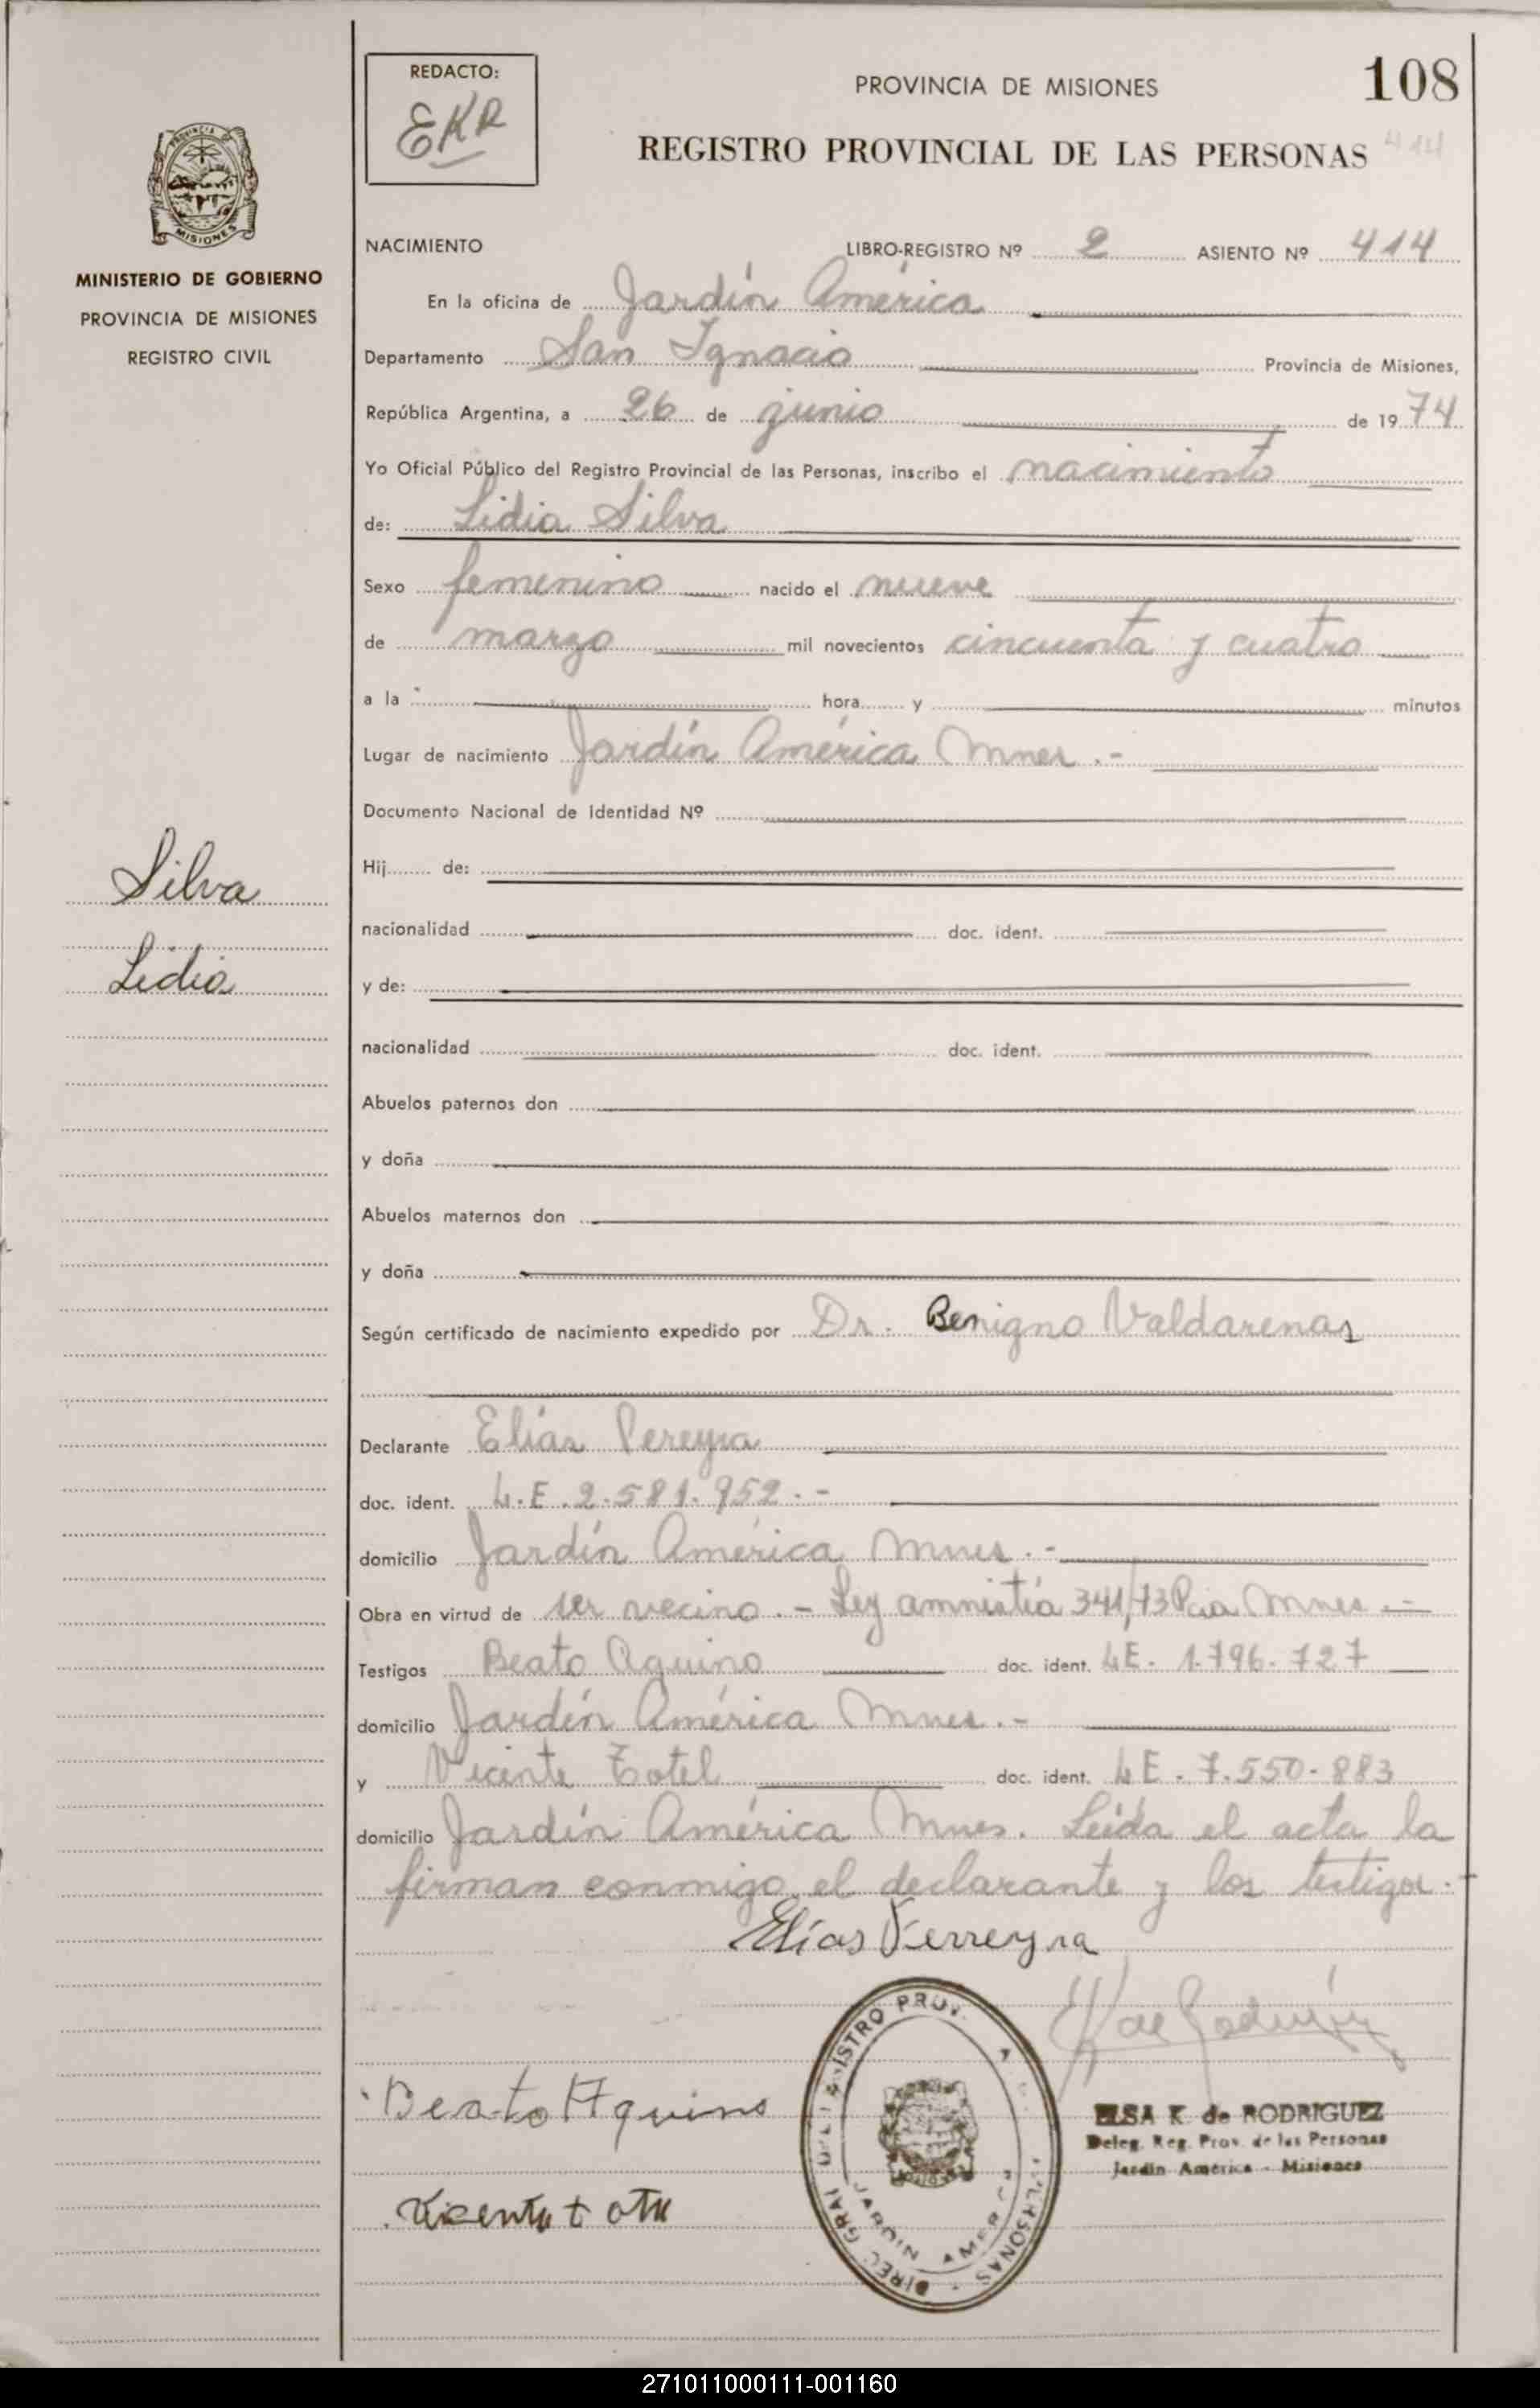 REDACTO:
EKR
PROVINCIA DE MISIONES
108
REGISTRO PROVINCIAL DE LAS PERSONAS
414
MISIONES
MINISTERIO DE GOBIERNO
PROVINCIA DE MISIONES
REGISTRO CIVIL
NACIMIENTO LIBRO-REGISTRO Nº 2 ASIENTO Nº 414
En la oficina de Jardín América
Departamento San Ignacio Provincia de Misiones,
República Argentina, a 26 de junio de 1974
Yo Oficial Público del Registro Provincial de las Personas, inscribo el nacimiento
de: Lidia Silva
Sexo femenino nacido el nueve
de marzo mil novecientos cincuenta y cuatro
a la hora y minutos
Lugar de nacimiento Jardín América Mnes.-
Documento Nacional de Identidad Nº
Silva
Lidia
Hij de:
nacionalidad doc. ident.
y de:
nacionalidad doc. ident.
Abuelos paternos don
y doña
Abuelos maternos don
y doña
Según certificado de nacimiento expedido por Dr. Benigno Valdarenas
Declarante Elías Pereyra
doc. ident. L.E. 2.581.952.-
domicilio Jardín América Mnes.-
Obra en virtud de ser vecino.- Ley amnistía 341/73 Pcia Mnes
Testigos Beato Aquino doc. ident. LE. 1.796.727
domicilio Jardín América Mnes.-
y Vicente Totel doc. ident. LE. 7.550-883
domicilio Jardín América Mnes. Leída el acta la
firman conmigo el declarante y los testigos.-
Elías Ferreyra
Beato Aquino
ELSA K. de RODRIGUEZ
Deleg. Reg. Prov. de las Personas
Jardín América - Misiones
271011000111-001160